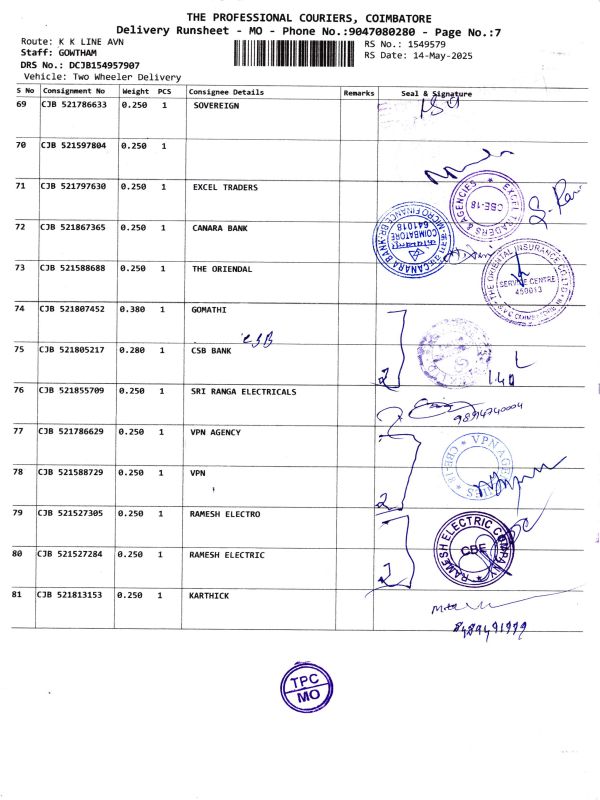 THE PROFESSIONAL COURIERS, COIMBATORE
Delivery Runsheet - MO - Phone No.:9047080280 - Page No.:7
Route: K K LINE AVN
RS No.: 1549579
Staff: GOWTHAM
RS Date: 14-May-2025
DRS No.: DCJB154957907
Vehicle: Two Wheeler Delivery
S No Consignment No Weight PCS Consignee Details Remarks Seal & Signature
69 CJB 521786633 0.250 1 SOVEREIGN
70 CJB 521597804 0.250 1
71 CJB 521797630 0.250 1 EXCEL TRADERS
EXCEL TRADERS & AGENCIES
CBE-18
72 CJB 521867365 0.250 1 CANARA BANK
CANARA BANK
MICRO FINANCE BR.
COIMBATORE
641018
73 CJB 521588688 0.250 1 THE ORIENDAL
THE ORIENTAL INSURANCE CO.LTD.
SERVICE CENTRE
450013
COIMBATORE
74 CJB 521807452 0.380 1 GOMATHI
CSB
75 CJB 521805217 0.280 1 CSB BANK
2
140
76 CJB 521855709 0.250 1 SRI RANGA ELECTRICALS
77 CJB 521786629 0.250 1 VPN AGENCY
VPN AGENCIES
CBE-18
78 CJB 521588729 0.250 1 VPN
2
79 CJB 521527305 0.250 1 RAMESH ELECTRO
RAMESH ELECTRIC COMPANY
CBE
80 CJB 521527284 0.250 1 RAMESH ELECTRIC
2
81 CJB 521813153 0.250 1 KARTHICK
TPC
MO